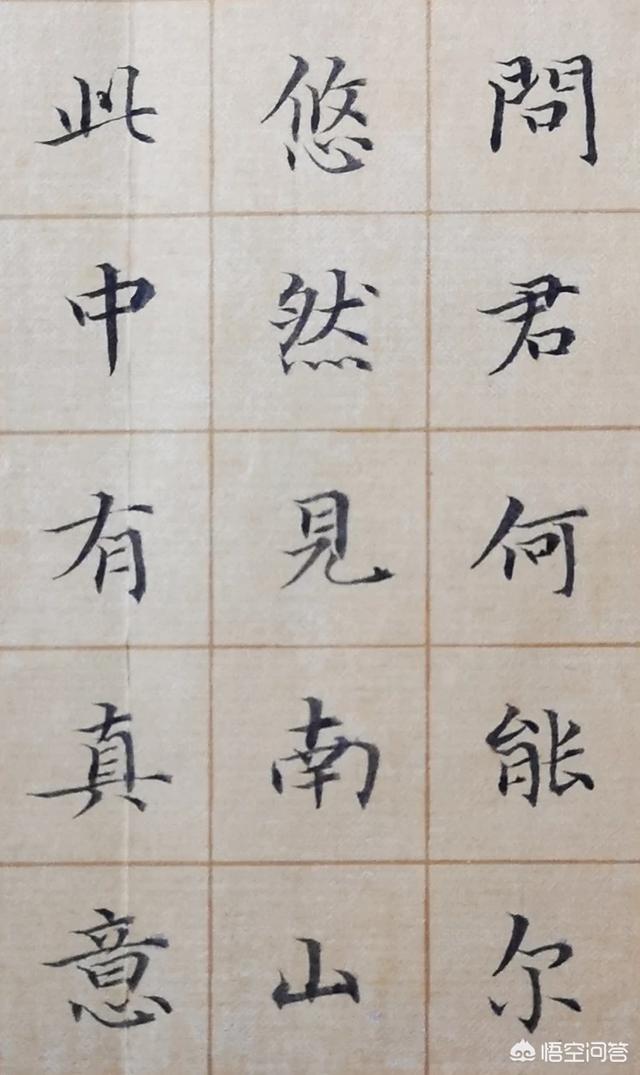 問君何能尔
悠然見南山
此中有真意
悟空问答